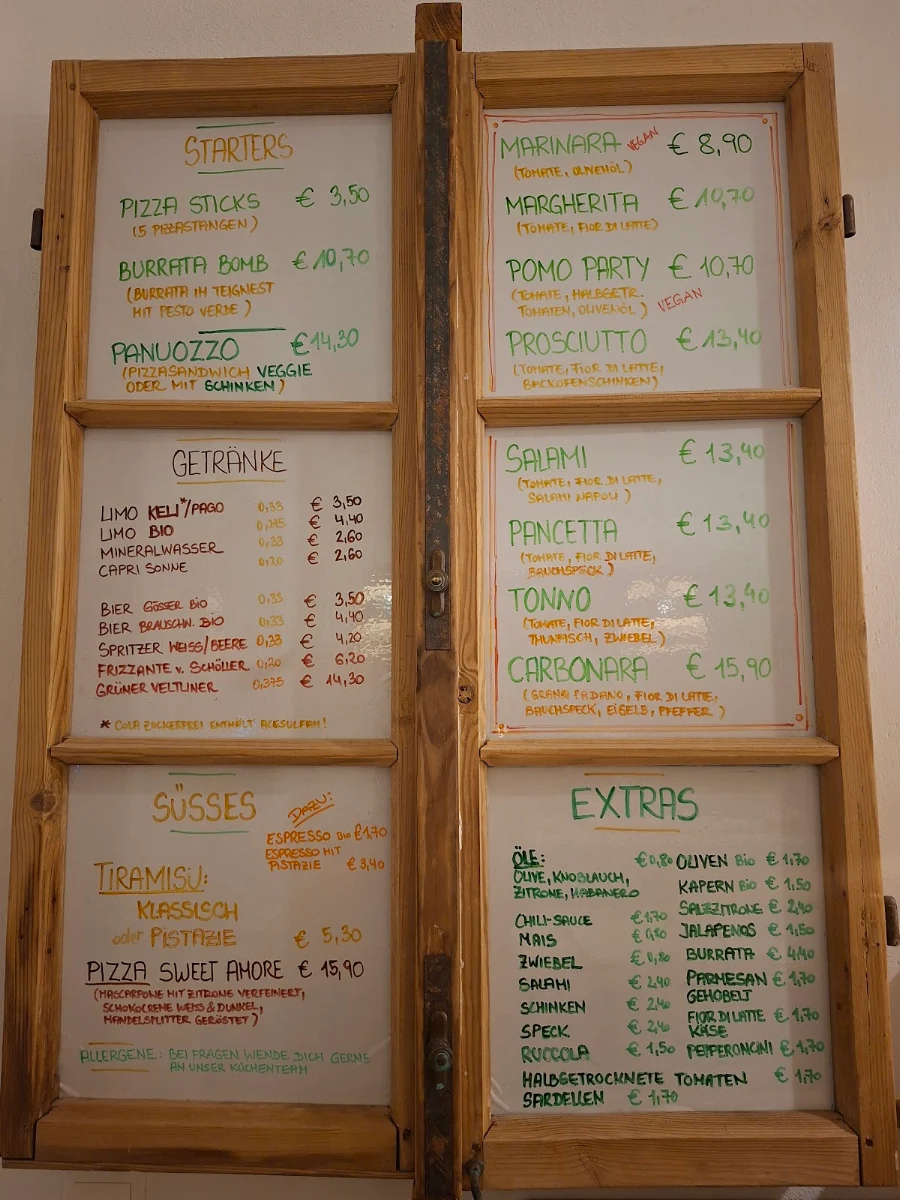 STARTERS
PIZZA STICKS € 3,50
(5 PIZZASTANGEN)
BURRATA BOMB € 10,70
(BURRATA IM TEIGNEST
MIT PESTO VERDE)
PANUOZZO € 14,30
(PIZZASANDWICH VEGGIE
ODER MIT SCHINKEN)
GETRÄNKE
LIMO KELI*/PAGO 0,33 € 3,50
LIMO BIO 0,275 € 4,40
MINERALWASSER 0,33 € 2,60
CAPRI SONNE 0,20 € 2,60
BIER GÖSSER BIO 0,33 € 3,50
BIER BRAUSCHN. BIO 0,33 € 4,40
SPRITZER WEISS/BEERE 0,33 € 4,20
FRIZZANTE v. SCHÖLLER 0,20 € 6,20
GRÜNER VELTLINER 0,375 € 14,30
* COLA ZUCKERFREI ENTHÄLT ACESULFAM!
SÜSSES
DAZU:
ESPRESSO BIO € 1,70
ESPRESSO MIT
PISTAZIE € 3,40
TIRAMISU:
KLASSISCH
oder PISTAZIE € 5,30
PIZZA SWEET AMORE € 15,90
(MASCARPONE MIT ZITRONE VERFEINERT,
SCHOKOCREME WEISS & DUNKEL,
MANDELSPLITTER GERÖSTET)
ALLERGENE: BEI FRAGEN WENDE DICH GERNE
AN UNSER KÜCHENTEAM
MARINARA VEGAN € 8,90
(TOMATE, OLIVENÖL)
MARGHERITA € 10,70
(TOMATE, FIOR DI LATTE)
POMO PARTY € 10,70
(TOMATE, HALBGETR.
TOMATEN, OLIVENÖL) VEGAN
PROSCIUTTO € 13,40
(TOMATE, FIOR DI LATTE,
BACKOFENSCHINKEN)
SALAMI € 13,40
(TOMATE, FIOR DI LATTE,
SALAMI NAPOLI)
PANCETTA € 13,40
(TOMATE, FIOR DI LATTE,
BAUCHSPECK)
TONNO € 13,40
(TOMATE, FIOR DI LATTE,
THUNFISCH, ZWIEBEL)
CARBONARA € 15,90
(GRANA PADANO, FIOR DI LATTE,
BAUCHSPECK, EIGELB, PFEFFER)
EXTRAS
ÖLE: € 0,80
OLIVE, KNOBLAUCH,
ZITRONE, HABANERO
CHILI-SAUCE € 1,70
MAIS € 0,80
ZWIEBEL € 0,80
SALAMI € 2,40
SCHINKEN € 2,40
SPECK € 2,40
RUCCOLA € 1,50
OLIVEN BIO € 1,70
KAPERN BIO € 1,50
SALZZITRONE € 2,40
JALAPENOS € 1,50
BURRATA € 4,40
PARMESAN € 1,70
GEHOBELT
FIOR DI LATTE € 1,70
KÄSE
PEPPERONCINI € 1,70
HALBGETROCKNETE TOMATEN € 1,70
SARDELLEN € 1,70